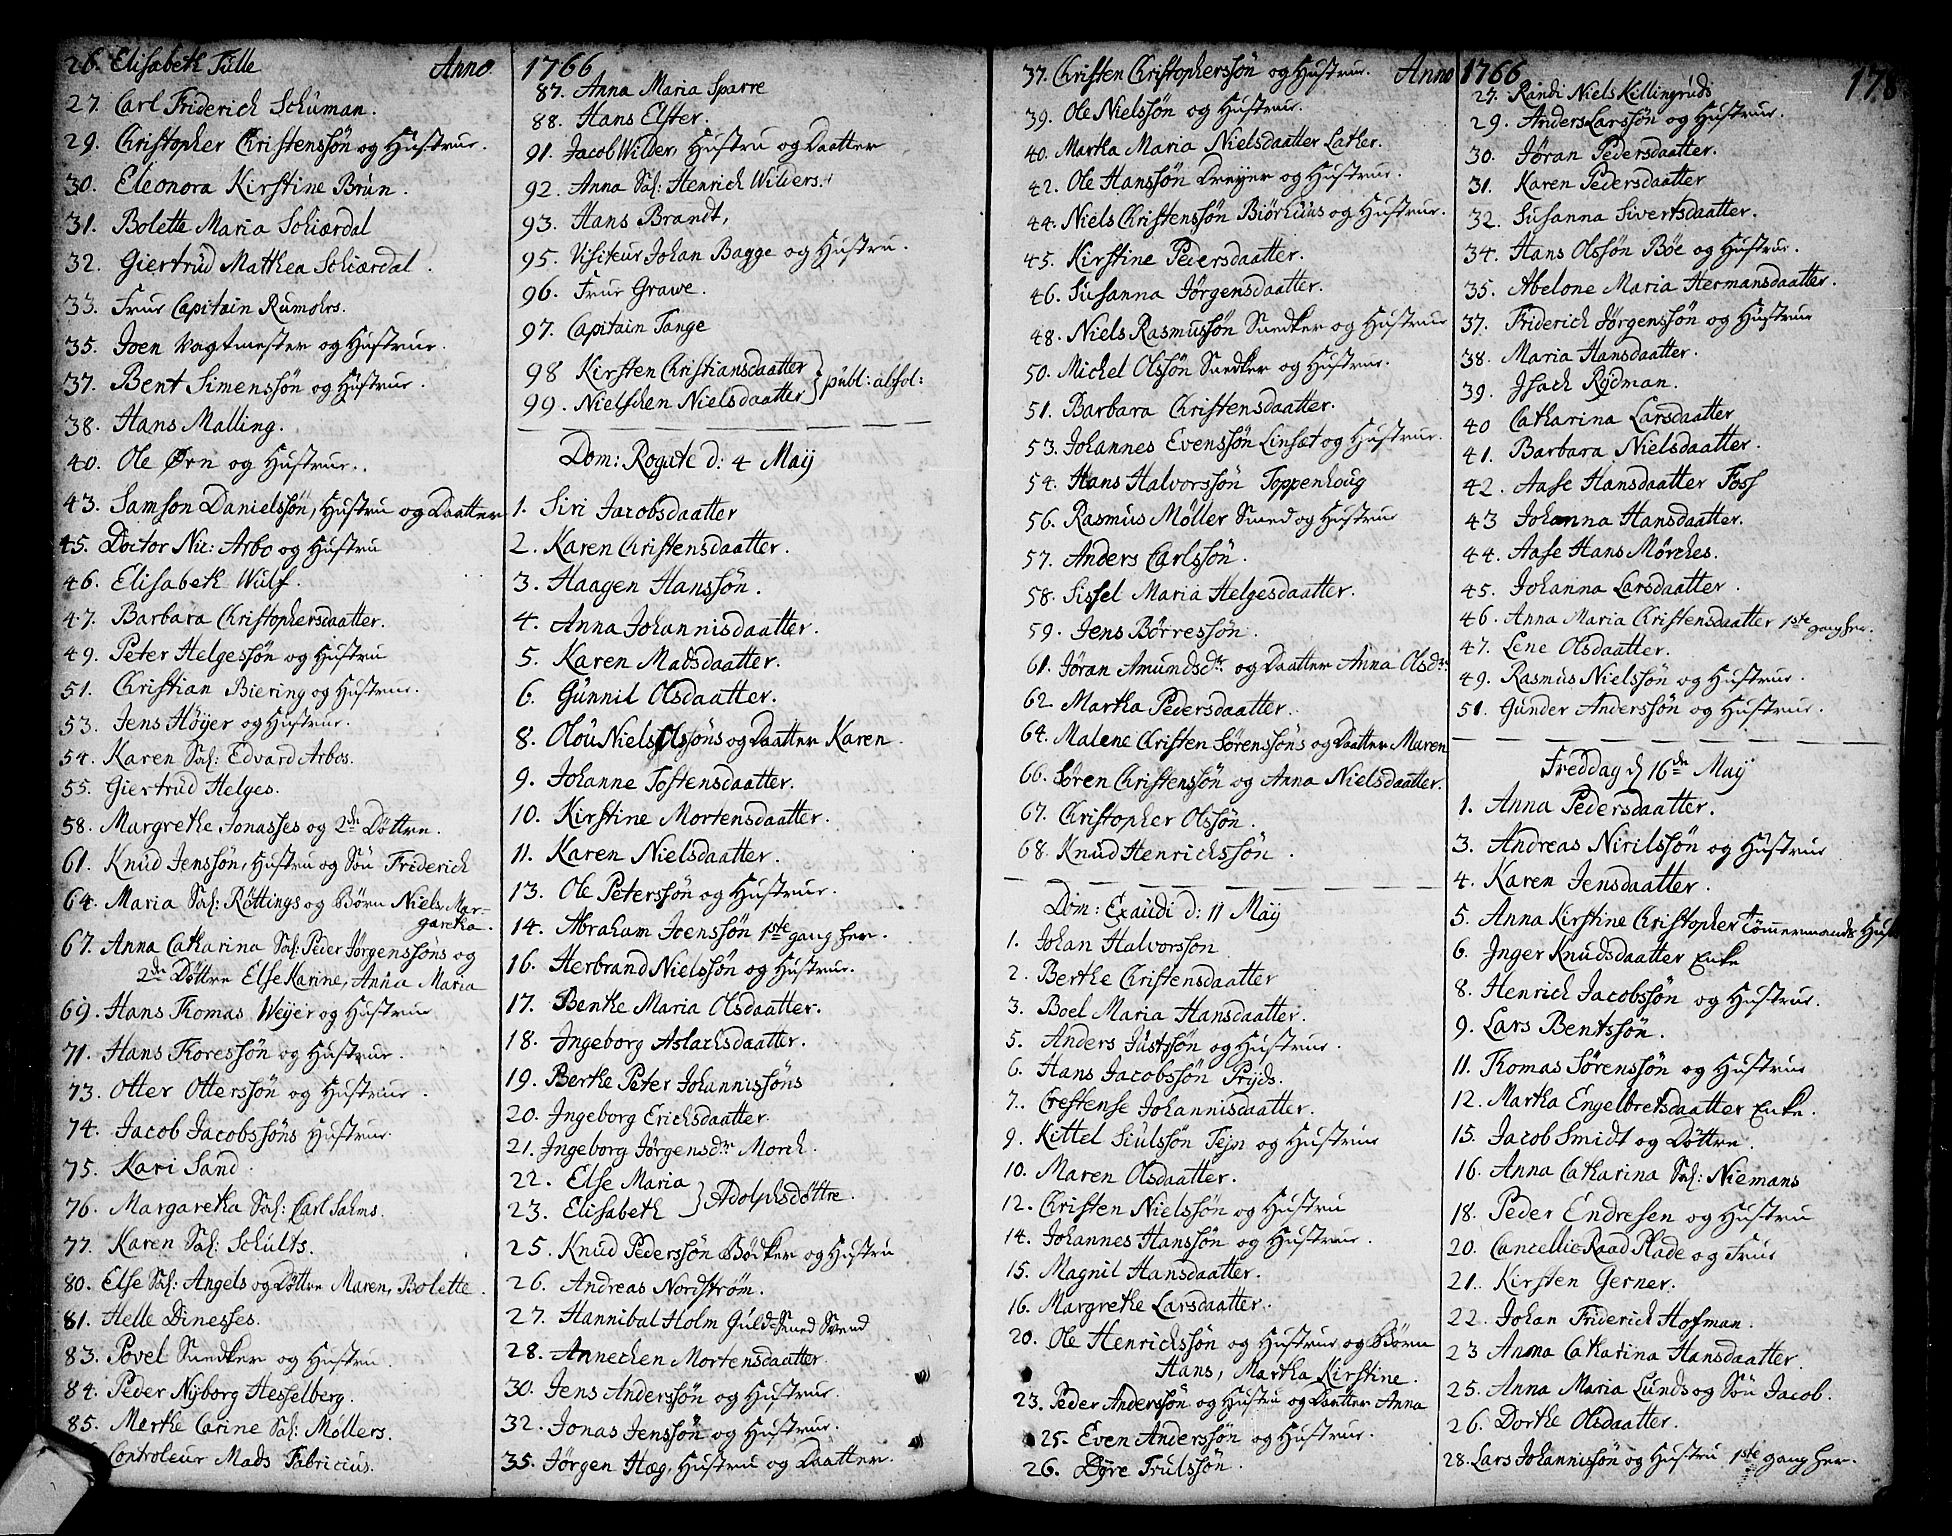 26. Elisabeth Tülle
Anno
27. Carl Friderich Schüman.
29. Christopher Christenssön og Hustrue.
30. Eleonora Kirstine Brün.
31. Bolette Maria Schiærdal
32. Giertrüd Mathea Schiærdal.
33. Frue Capitain Rumohrs.
35. Joen Vagtmester og Hustrue.
37. Bent Simenssön og Hustrue.
38. Hans Malling.
40. Ole Ørn og Hustrue.
43. Samson Danielssön, Hustru og Daatter
45. Doctor Nic: Arbo og Hustru
46. Elisabeth Wulf.
47. Barbara Christophersdaatter.
49. Peter Helgessön og Hustru
51. Christian Biering og Hustrue.
53. Jens Höyer og Hustrue.
54. Karen Sal: Edvard Arbos.
55. Giertrüd Helges.
58. Margrethe Jonasses og 2de Döttre.
61. Knüd Jenssön, Hustru og Sön Friderich
64. Maria Sal: Röttings og Börn Niels, Mar-
garetha.
67. Anna Catharina Sal: Peder Jörgenssöns og
2de Döttre Else Karine, Anna Maria
69. Hans Thomas Weyer og Hustrue
71. Hans Thoressön og Hustrue.
73. Otter Otterssön og Hustrue.
74. Jacob Jacobssöns Hustrue.
75. Kari Sand.
76. Margaretha Sal: Carl Salms.
77. Karen Sal: Schults.
80. Else Sal: Angels og Döttre Maren, Bolette.
81. Helle Dinesses.
83. Povel Snedker og Hustru.
84. Peder Nyborg Hesselberg.
85. Merthe Carine Sal: Möllers.
Controleur Mads Fabricius.
1766
87. Anna Maria Sparre
88. Hans Elster.
91. Jacob Wilder, Hustru og Daatter
92. Anna Sal: Henrich Wilders.
93. Hans Brandt,
95. Visiteur Johan Bagge og Hustru.
96. Frue Grawe.
97. Capitain Tange
98 Kirsten Christiansdaatter
99. Nielschen Nielsdaatter } publ: absol:
Dom: Rogate d: 4 Maij
1. Siri Jacobsdaatter
2. Karen Christensdaatter.
3. Haagen Hanssön.
4. Anna Johannisdaatter.
5. Karen Madsdaatter.
6. Günnil Olsdaatter.
8. Olöu Niels Olssöns og Daatter Karen.
9. Johanne Tostensdaatter.
10. Kirstine Mortensdaatter.
11. Karen Nielsdaatter.
13. Ole Peterssön og Hustrue.
14. Abraham Joenssön 1ste gang her.
16. Herbrand Nielssön og Hustrue.
17. Benthe Maria Olsdaatter.
18. Ingeborg Aslachsdaatter.
19. Berthe Peter Johannissöns
20. Ingeborg Erichsdaatter.
21. Ingeborg Jörgensdr Morch.
22. Else Maria
23. Elisabeth } Adolphsdöttre.
25. Knüd Pederssön Bödker og Hustru
26. Andreas Nordström.
27. Hannibal Holm Güld-Smed Svend
28. Annechen Mortensdaatter
30. Jens Anderssön og Hustrue.
32. Jonas Jenssön og Hustrue.
35. Jörgen Hæg, Hustru og Daatter.
37. Christen Christopherssön og Hustrue.
Anno
39. Ole Nielssön og Hustrue.
40. Martha Maria Nielsdaatter Lather.
42. Ole Hanssön Dreyer og Hustrue.
44. Niels Christenssön Biörhüüs og Hustrue.
45. Kirstine Pedersdaatter.
46. Susanna Jörgensdaatter.
48. Niels Rasmussön Snedker og Hustrue
50. Michel Olssön Snedker og Hustrue.
51. Barbara Christensdaatter.
53. Johannes Evenssön Linset og Hustrue.
54. Hans Halvorssön Toppenhoug
56. Rasmüs Møller Smed og Hustrue
57. Anders Carlssön.
58. Sissel Maria Helgesdaatter.
59. Jens Börressön.
61. Jöran Amundsdr og Daatter Anna Olsdr
62 Martha Pedersdaatter.
64. Malene Christen Sörenssöns og Daatter Maren
66. Sören Christenssön og Anna Nielsdaatter.
67. Christopher Olssön.
68. Knüd Henrichssön.
Dom: Exaudi d: 11 Maij
1. Johan Halvorsson
2. Berthe Christensdaatter
3. Boel Maria Hansdaatter.
5. Anders Jüstssön og Hustrue.
6. Hans Jacobssön Prijds.
7. Chrestense Johannisdaatter.
9. Kittel Siülssön Tejn og Hustrue
10. Maren Olsdaatter.
12. Christen Nielssön og Hustru
14. Johannes Hanssön og Hustrue.
15. Magnil Hansdaatter.
16. Margrethe Larsdaatter.
20. Ole Henrichssön og Hustrue og Börn
Hans, Martha Kirstine.
23. Peder Anderssön og Hustru og Daatter Anna
25. Even Anderssön og Hustrue.
26. Dyre Trulssön.
1766
178
27. Randi Niels Killingrüds
29. Anders Larssön og Hustrue.
30. Jöran Pedersdaatter.
31. Karen Pedersdaatter
32. Susanna Sivertsdaatter.
34. Hans Olssön Böe og Hustrue.
35. Abelone Maria Hermansdaatter.
37. Friderich Jörgenssön og Hustrue
38. Maria Hansdaatter.
39. Isach Rydman.
40 Catharina Larsdaatter
41. Barbara Nielsdaatter.
42. Aase Hansdaatter Foss
43 Johanna Hansdaatter.
44. Aase Hans Mörches.
45. Johanna Larsdaatter.
46. Anna Maria Christensdaatter 1ste gang her.
47. Lene Olsdaatter.
49. Rasmüs Nielssön og Hustrue.
51. Gunder Anderssön og Hustrue.
Freddag d 16de Maij
1. Anna Pedersdaatter.
3. Andreas Nirilssön og Hustrue
4. Karen Jensdaatter.
5. Anna Kirstine Christopher Tömmermands Hust
6. Inger Knüdsdaatter Enke
8. Henrich Jacobssön og Hustrue.
9. Lars Bentssön.
11. Thomas Sörenssön og Hustrue
12. Martha Engelbretsdaatter Enke.
15. Jacob Smidt og Döttre.
16. Anna Catharina Sal: Niemans
18. Peder Endresen og Hustru
20. Cancellie Raad Plade og Frue
21. Kirsten Gerner.
22. Johan Friderich Hofman.
23 Anna Catharina Hansdaatter.
25. Anna Maria Lünds og Sön Jacob.
26. Dorthe Olsdaatter.
28. Lars Johannissön og Hustru 1ste gang her.